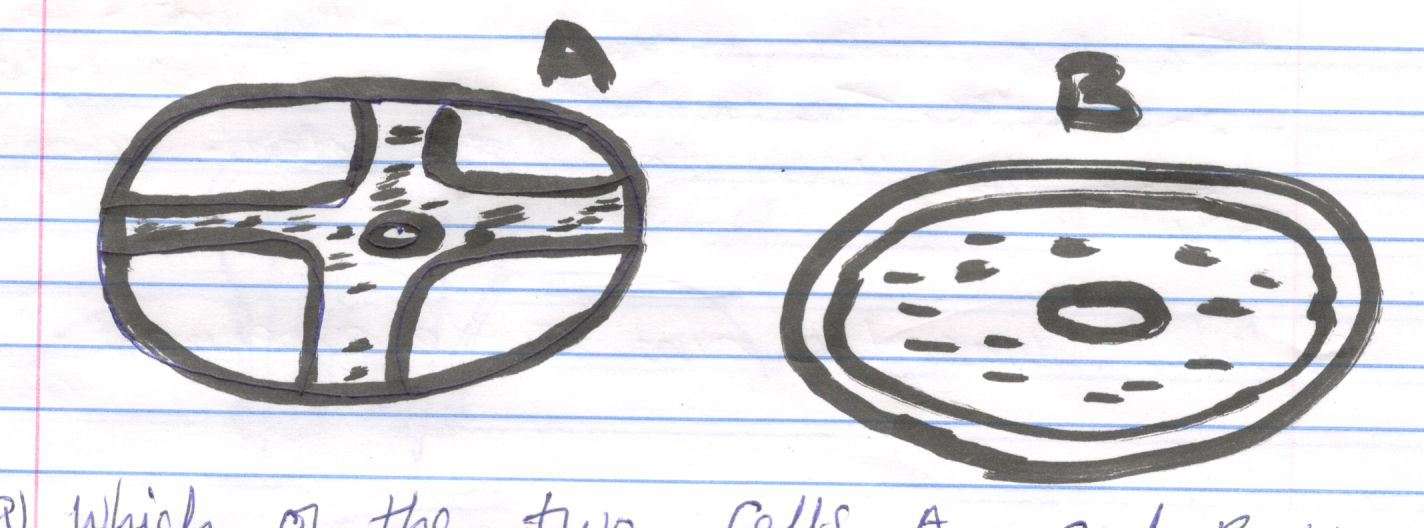 A
B
a) Which of the two cells A and B